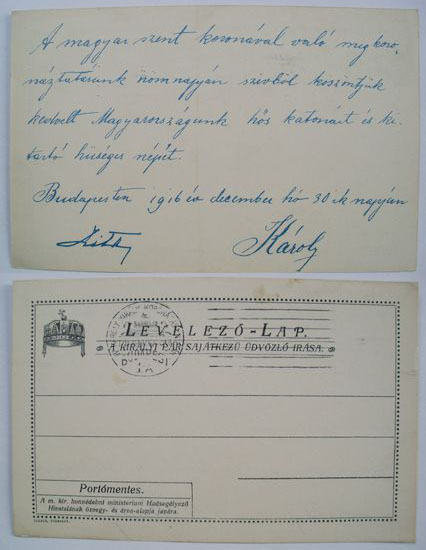 A magyar szent koronával való megkoro-
náztatásunk örömnapján szívből köszöntjük
kedvelt Magyarországunk hős katonáit és ki-
tartó hűséges népét.
Budapesten 1916 év december hó 30-ik napján
Zita Károly
LEVELEZŐ-LAP.
A KIRÁLYI PÁR SAJÁTKEZŰ ÜDVÖZLŐ IRÁSA.
Portómentes.
A m. kir. honvédelmi ministerium Hadsegélyező
Hivatalának özvegy- és árva-alapja javára.